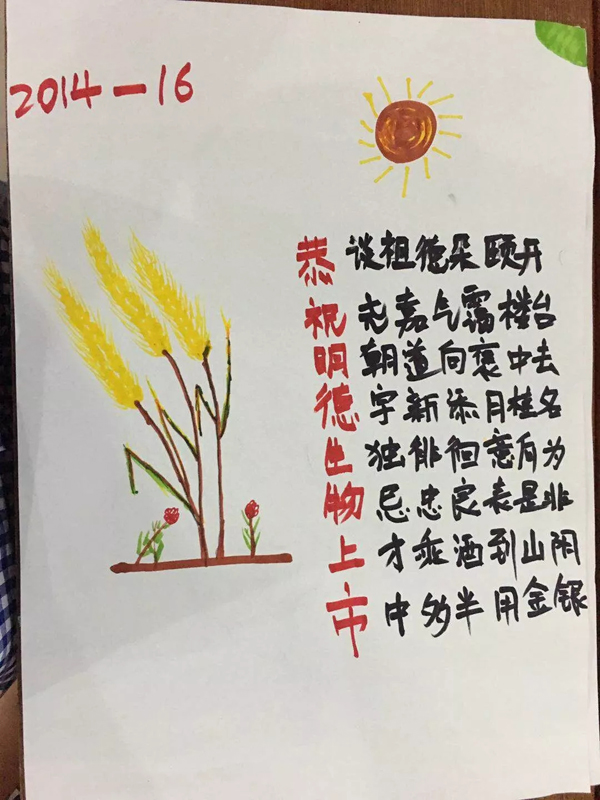 2014-16
恭谈祖德朵颐开
祝尧嘉气霭楼台
明朝道向褒中去
德宇新添月桂名
生独徘徊意有为
物忌忠良表是非
上才乘酒到山阴
市中多半用金银